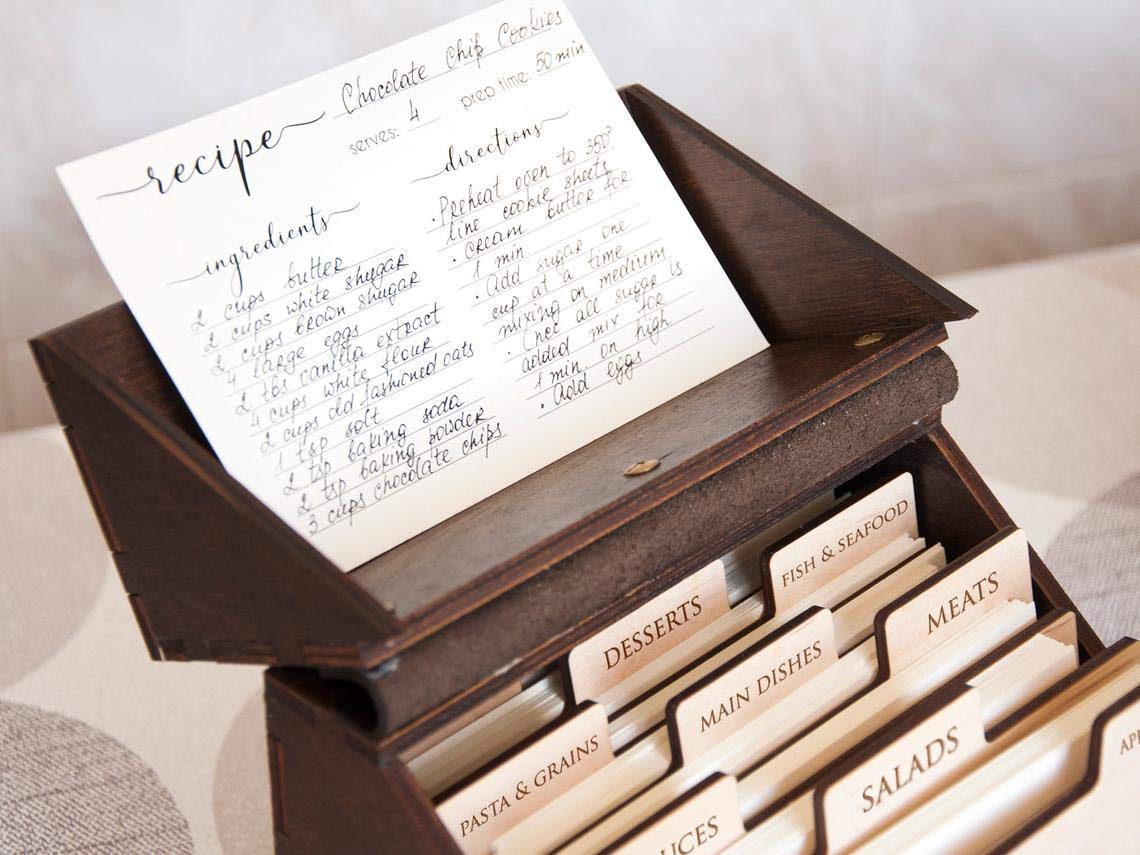 recipe Chocolate Chip Cookies
serves: 4 prep time: 50 min
ingredients
2 cups butter
2 cups white shugar
2 cups brown shugar
4 large eggs
2 tbs vanilla extract
4 cups white flour
2 cups old fashioned oats
1 tsp salt
2 tsp baking soda
2 tsp baking powder
3 cups chocolate chips
directions
• Preheat oven to 350°
line cookie sheets
• cream butter for
1 min
• Add sugar one
cup at a time
mixing on medium
• Once all sugar is
added mix for
1 min on high
• Add eggs
FISH & SEAFOOD
DESSERTS
MEATS
MAIN DISHES
PASTA & GRAINS
SALADS